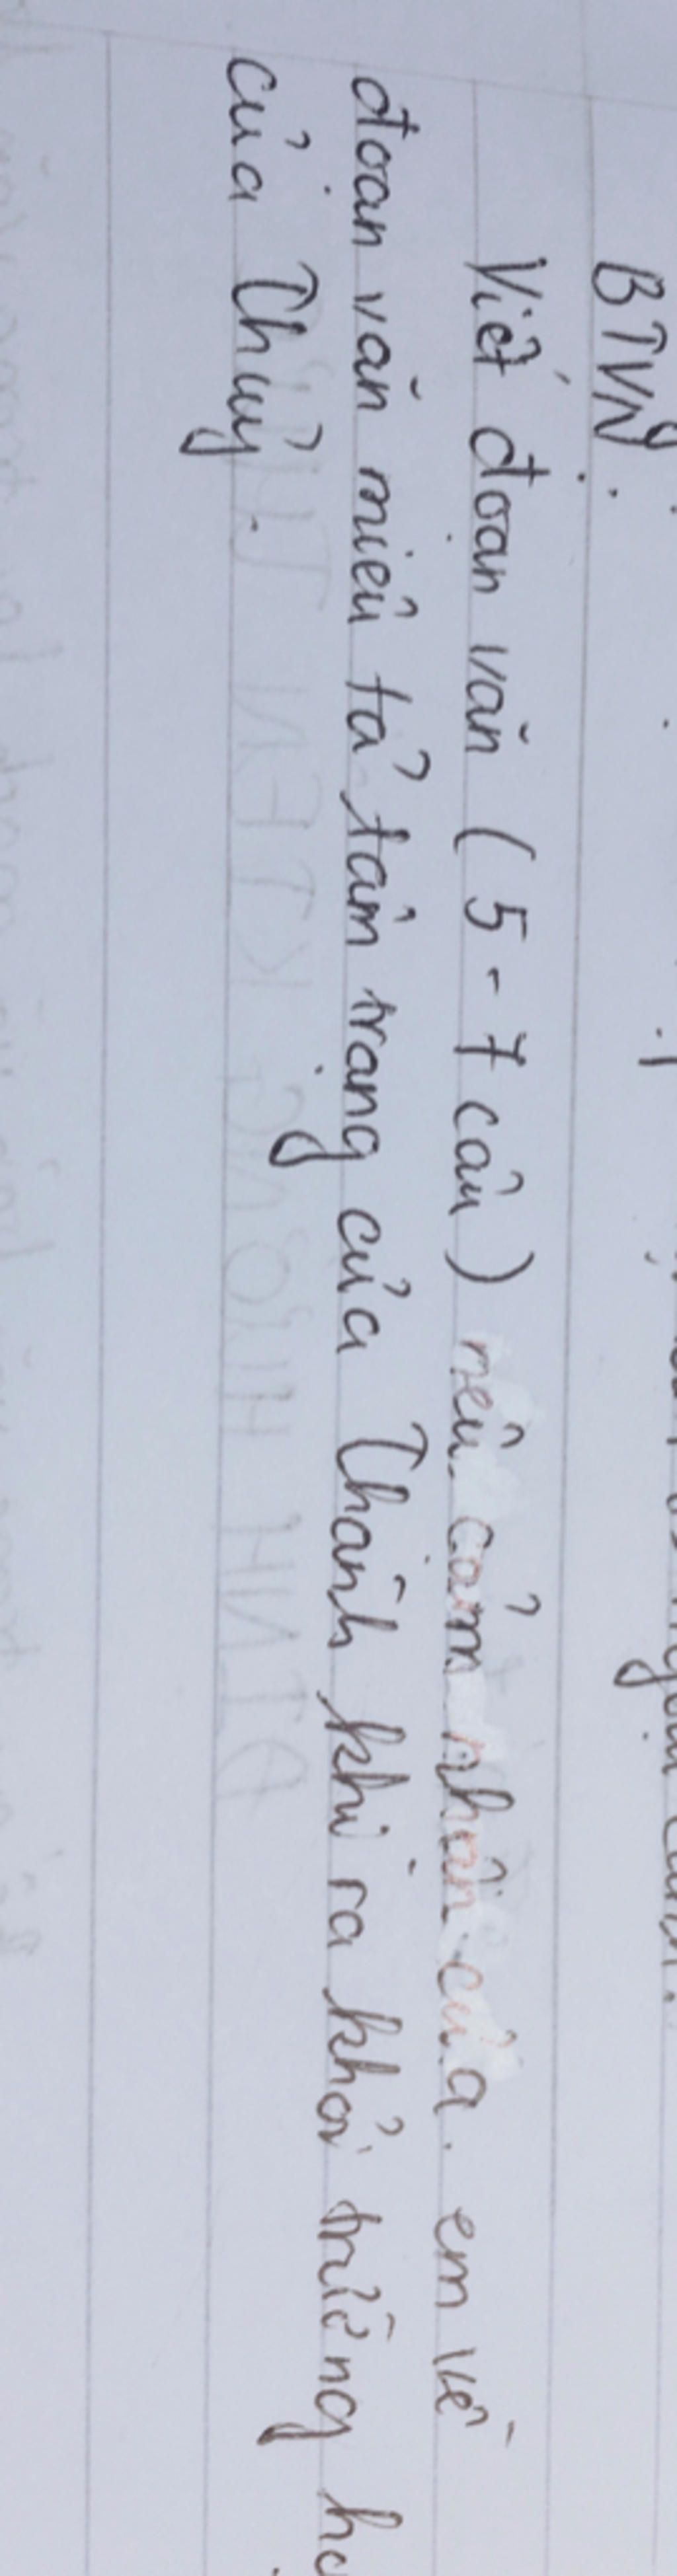 BTVN:
Viết đoạn văn (5-7 câu) nêu cảm nhận của em về
đoạn văn miêu tả tâm trạng của Thành khi ra khỏi trường
của Thuỷ.